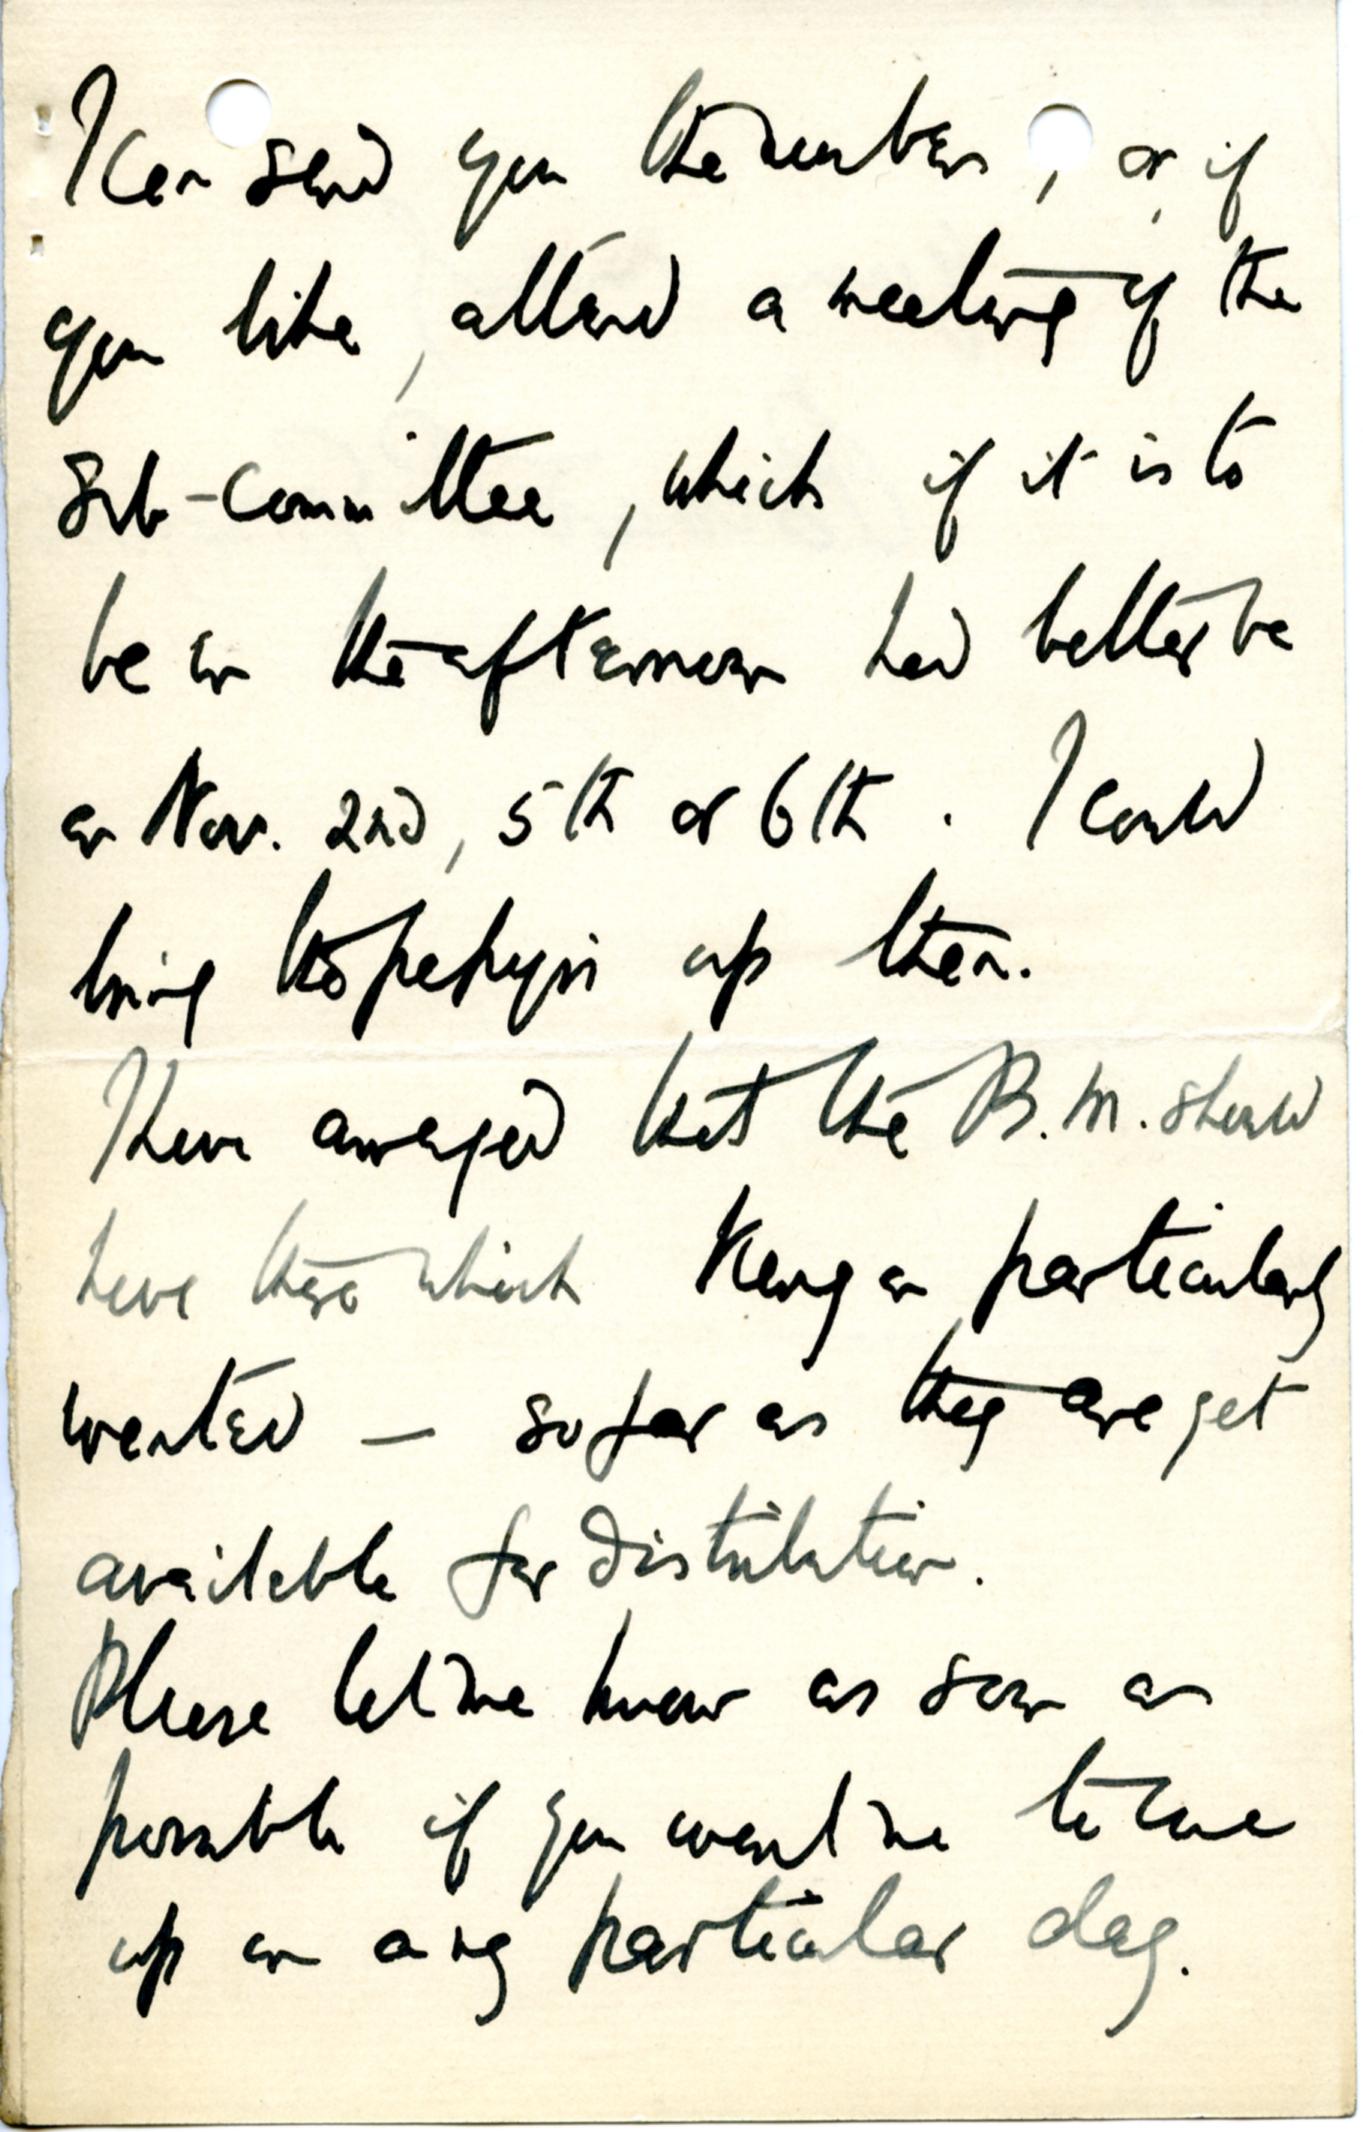 I can send you the numbers, or if
you like, attend a meeting of the
Sub-Committee, which if it is to
be in the afternoon had better be
on Nov. 2nd, 5th or 6th. I could
bring the papyri up then.
I have arranged that the B.M. should
have those which Kenyon particularly
wanted — so far as they are yet
available for distribution.
Please let me know as soon as
possible if you want me to come
up on any particular day.